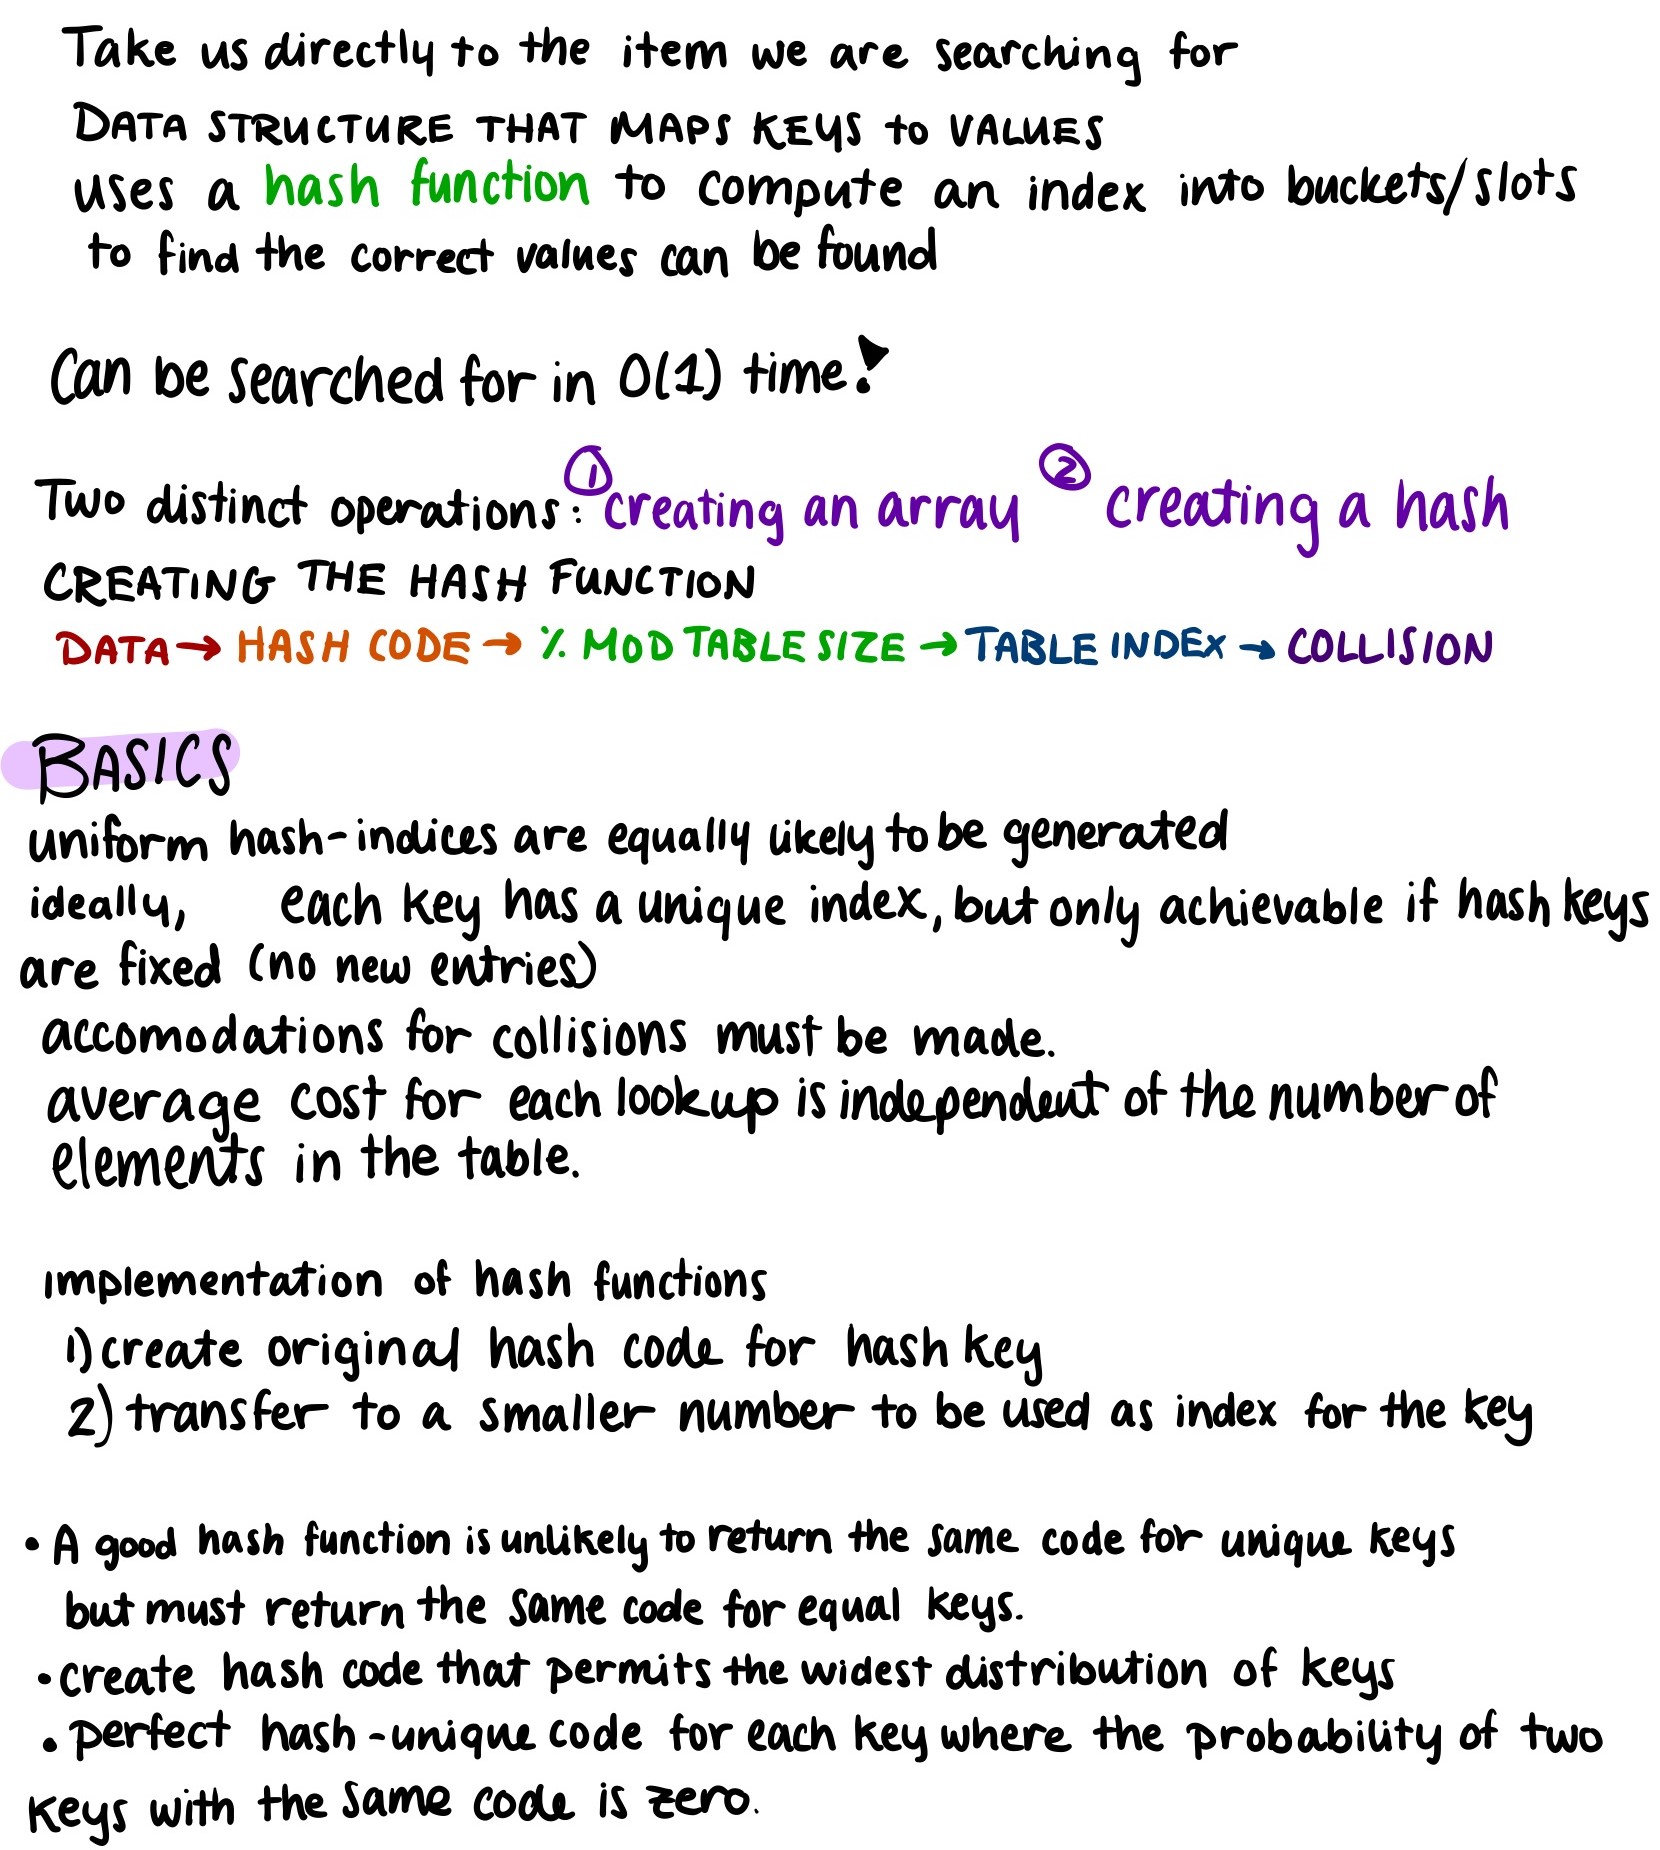 Take us directly to the item we are searching for
DATA STRUCTURE THAT MAPS KEYS to VALUES
uses a hash function to compute an index into buckets/slots
to find the correct values can be found
Can be searched for in O(1) time!
Two distinct operations: ① creating an array ② creating a hash
CREATING THE HASH FUNCTION
DATA → HASH CODE → % MOD TABLE SIZE → TABLE INDEX → COLLISION
BASICS
uniform hash-indices are equally likely to be generated
ideally, each key has a unique index, but only achievable if hash keys
are fixed (no new entries)
accomodations for collisions must be made.
average cost for each lookup is independent of the number of
elements in the table.
implementation of hash functions
1) create original hash code for hash key
2) transfer to a smaller number to be used as index for the key
• A good hash function is unlikely to return the same code for unique keys
but must return the same code for equal keys.
• create hash code that permits the widest distribution of keys
• perfect hash - unique code for each key where the probability of two
keys with the same code is zero.